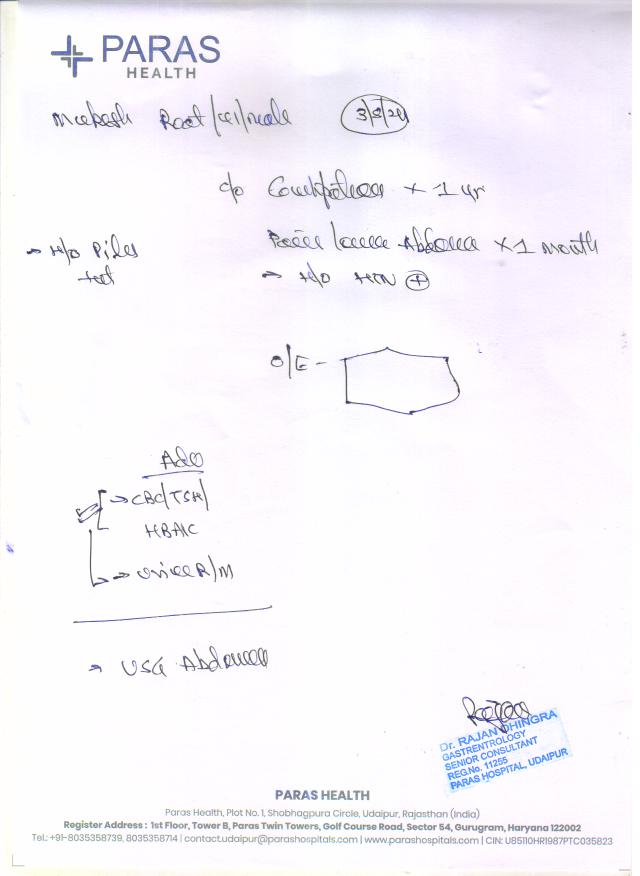 PARAS
HEALTH
Mukesh /male 3/8/24
c/o × 1 yr
→ H/o Piles
Pain Lower Abdomen × 1 month
→ H/o HTN ⊕
O/E -
Adv
→ CBC/TSH/
HBA1C
→ Urine R/M
→ USG Abdomen
Dr. RAJAN DHINGRA
GASTRENTROLOGY
SENIOR CONSULTANT
REG.No. 11255
PARAS HOSPITAL, UDAIPUR
PARAS HEALTH
Paras Health, Plot No. 1, Shobhagpura Circle, Udaipur, Rajasthan (India)
Register Address : 1st Floor, Tower B, Paras Twin Towers, Golf Course Road, Sector 54, Gurugram, Haryana 122002
Tel.: +91-8035358739, 8035358714 | contact.udaipur@parashospitals.com | www.parashospitals.com | CIN: U85110HR1987PTC035823